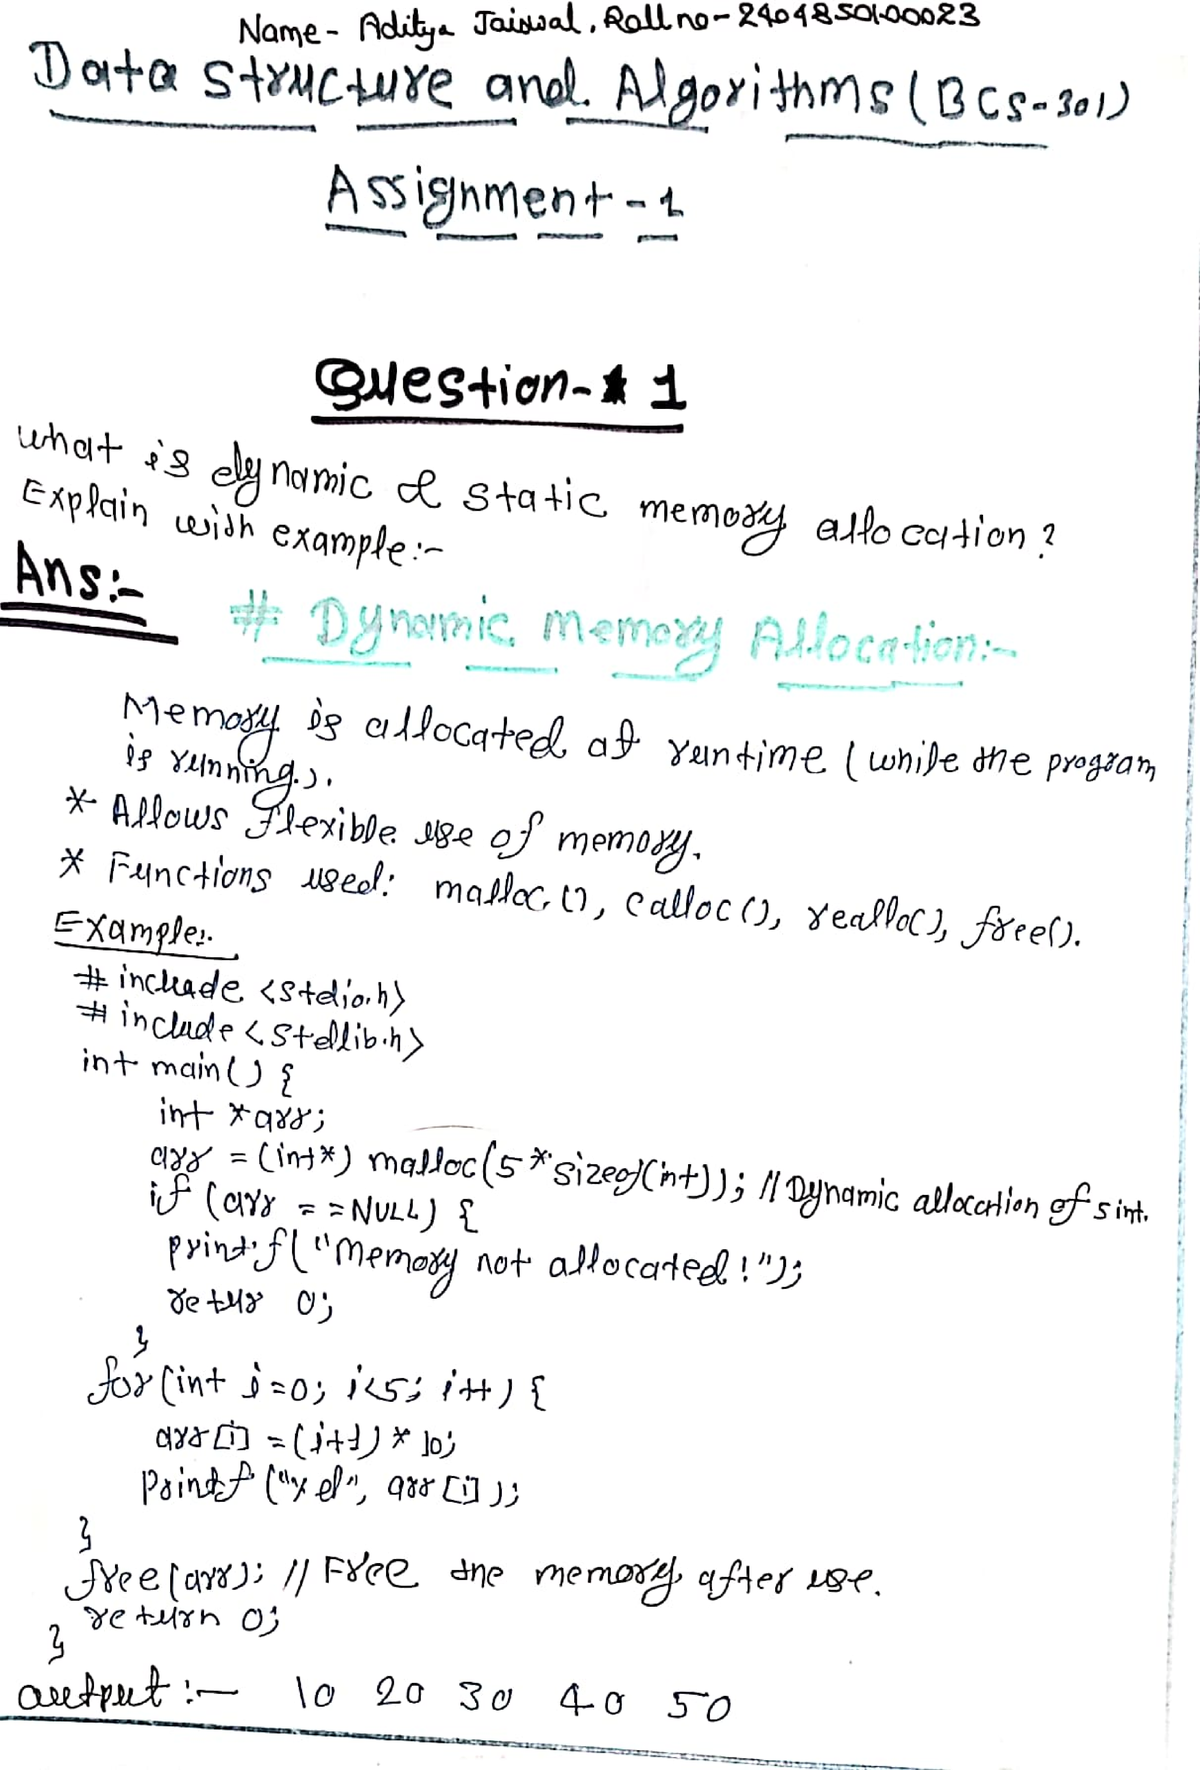 Name - Aditya Jaiswal, Roll no - 2404850100023
Data structure and Algorithms (BCS-301)
Assignment - 1
Question- 1
what is dynamic & static memory allocation?
Explain with example:-
Ans:-
# Dynamic Memory Allocation:-
Memory is allocated at runtime (while the program
is running.).
* Allows flexible use of memory.
* Functions used: malloc(), calloc(), realloc(), free().
Example:-
# include <stdio.h>
# include <stdlib.h>
int main() {
int *arr;
arr = (int*) malloc(5 * sizeof(int)); // Dynamic allocation of 5 int.
if (arr == NULL) {
printf("Memory not allocated!");
retur 0;
}
for (int i=0; i<5; i++) {
arr[i] = (i+1) * 10;
Printf ("%d", arr[i]);
}
free(arr); // Free the memory after use.
return 0;
}
output :- 10 20 30 40 50